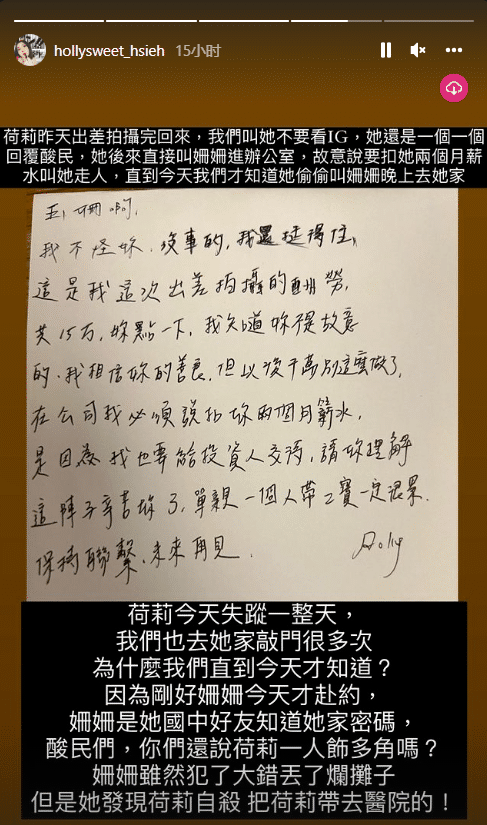 hollysweet_hsieh 15小时
荷莉昨天出差拍攝完回來，我們叫她不要看IG，她還是一個一個
回覆酸民，她後來直接叫姍姍進辦公室，故意說要扣她兩個月薪
水叫她走人，直到今天我們才知道她偷偷叫姍姍晚上去她家
姍啊，
我不怪妳，沒事的，我還挺得住，
這是我這次出差拍攝的酬勞，
共15万，妳點一下，我知道妳是故意
的，我相信妳的善良，但以後千萬別這麼做了，
在公司我必須說扣妳兩個月薪水，
是因為我也要給投資人交待，請妳理解
這陣子辛苦妳了，單親一個人帶2寶一定很累．
保持聯繫、未來再見．
Holly
荷莉今天失蹤一整天，
我們也去她家敲門很多次
為什麼我們直到今天才知道？
因為剛好姍姍今天才赴約，
姍姍是她國中好友知道她家密碼，
酸民們，你們還說荷莉一人飾多角嗎？
姍姍雖然犯了大錯丟了爛攤子
但是她發現荷莉自殺 把荷莉帶去醫院的！